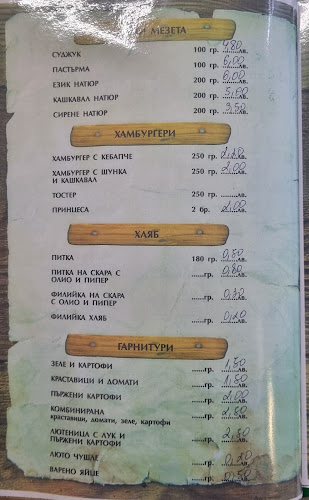 МЕЗЕТА
СУДЖУК 100 гр. 4,80 лв.
ПАСТЪРМА 100 гр. 6,00 лв.
ЕЗИК НАТЮР 200 гр. 6,00 лв.
КАШКАВАЛ НАТЮР 200 гр. 5,00 лв.
СИРЕНЕ НАТЮР 200 гр. 3,50 лв.
ХАМБУРГЕРИ
ХАМБУРГЕР С КЕБАПЧЕ 250 гр. 2,20 лв.
ХАМБУРГЕР С ШУНКА 250 гр. 2,00 лв.
И КАШКАВАЛ
ТОСТЕР 250 гр. ........лв.
ПРИНЦЕСА 2 бр. 2,00 лв.
ХЛЯБ
ПИТКА 180 гр. 0,50 лв.
ПИТКА НА СКАРА С ......гр. 0,80 лв.
ОЛИО И ПИПЕР
ФИЛИЙКА НА СКАРА ......гр. 0,30 лв.
С ОЛИО И ПИПЕР
ФИЛИЙКА ХЛЯБ ......гр. 0,20 лв.
ГАРНИТУРИ
ЗЕЛЕ И КАРТОФИ ......гр. 1,50 лв.
КРАСТАВИЦИ И ДОМАТИ ......гр. 1,80 лв.
ПЪРЖЕНИ КАРТОФИ ......гр. 2,00 лв.
КОМБИНИРАНА ......гр. 2,80 лв.
краставици, домати, зеле, картофи
ЛЮТЕНИЦА С ЛУК И ......гр. 2,50 лв.
ПЪРЖЕНИ КАРТОФИ
ЛЮТО ЧУШЛЕ ......гр. 0,20 лв.
ВАРЕНО ЯЙЦЕ ......гр. 0,50 лв.